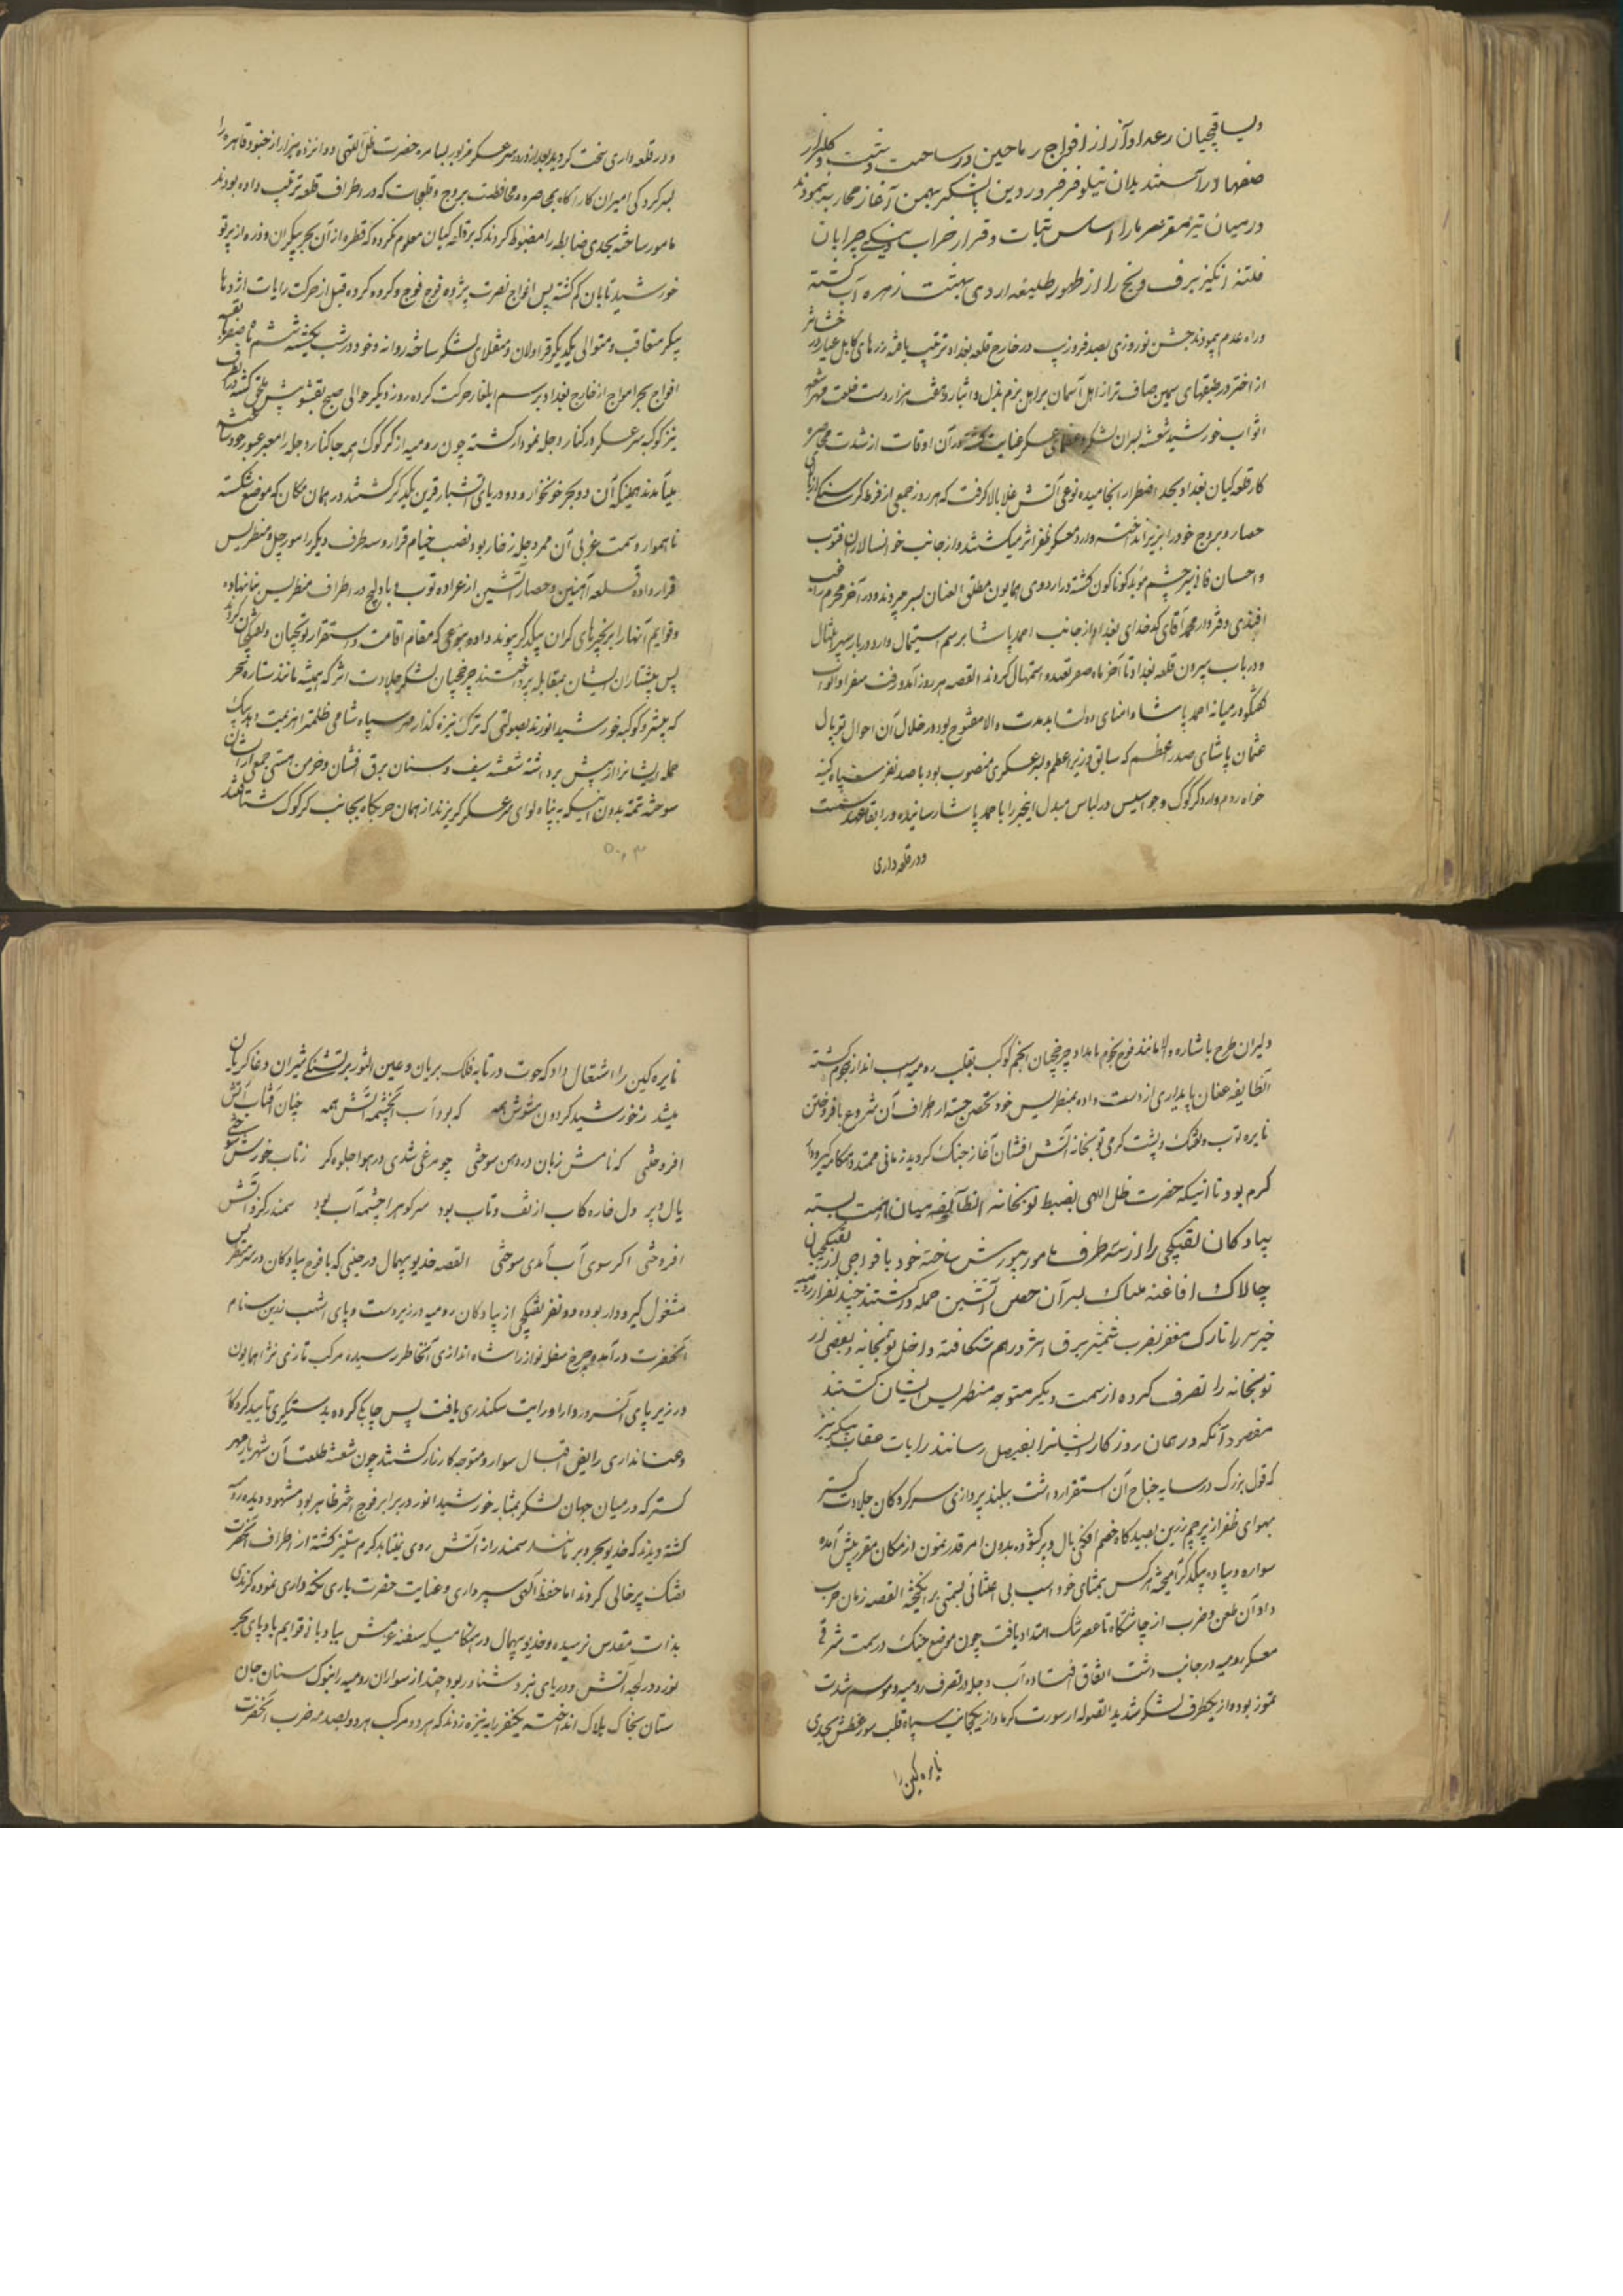 ویساقچیان رعد اوآز از افواج ریاحین در ساحت دشت و گلزار
صفها آراستند یلان نیلوفر فروردین با لشکر بهمن آغاز محاربه نمودند
در میانه اساس ثبات و قرار خراب و یخ چرابان
فتنه انگیز برف و یخ را از ظهور طلیعه اردی بهشت زهره آب گشته
وراه عدم پیمودند جشن نوروزی بصد فروزیب در خارج قلعه بغداد ترتیب یافته زرهای کامل عیار در
از اختر در طبقهای سیمین صاف تر از اهل آسمان بر اهل بزم بذل و ایثار و هزار دست خلعت
اثواب خورشید شعشعه بسران لشکر عسکر عنایت گشته در آن اوقات از شدت محاصره
کار قلعه کیان بغداد بحد اضطرار انجامیده نوعی آتش غلا بالا گرفت که هر روز جمعی از فرط گرسنگی از
حصار و بروج خود را بزیر انداخته وارد معسکر ظفر اثر میگشتند و از جانب خوانسالاران
و احسان فانی سیر چشم موید کوناکون گشته در اردوی همایون مطلق العنان بسر میبردند و در آخر محرم
افندی و محمد آقای کدخدای بغداد از جانب احمد پاشا برسم استیمال وارد دربار سپهر مثال
و در باب سپردن قلعه بغداد تا آخر ماه صفر تعهد و استمهال کردند القصه هر روز آمد و رفت سفرا و ابواب
گفتگو در میانه احمد پاشا و امنای دولت ابد مدت والا مفتوح بود در خلال آن احوال توپال
عثمان پاشای صدر اعظم که سابق وزیر اعظم و بسر عسکری منصوب بود با صد نفر سپاه کینه
خواه روم وارد کرکوک و جواسیس در لباس مبدل اینخبر را باحمد پاشا رسانیده و را بقا عهد سست
و در قلعه داری
و در قلعه داری سخت کردید بعد از ورود سر عسکر مزبور بسامره حضرت ظل اللهی دوانزده هزار از جنود قاهره را
بسرکردگی امیران کارآگاه بمحاصره و محافظت بروج و قلعجات که در اطراف قلعه ترتیب داده بودند
مامور ساخته بحدی ضابطه را مضبوط کردند که بر قلعه کیان معلوم نکردد که قطره از آن بحر بیکران و ذره از پرتو
خورشید تابان کم گشته پس افواج نصرت پژوه فوج فوج و گروه گروه قبل از حرکت رایات اژدها
پیکر متعاقب و متوالی یکدیگر قراولان و منقلای لشکر ساخته روانه و خود در شب یکشنبه ششم ماه صفر بقیه
افواج بحر امواج از خارج بغداد برسم ایلغار حرکت کرده روز دیگر حوالی صبح بقشونپیش ملحق گشته از آنطرف
نیز کوکبه سر عسکر در کنار دجله نمودار گشته چون رومیه از کرکوک همه جا کنار دجله را معبر عبور خود ساخته
میآمدند همینکه آن دو بحر خونخوار و دو دریای آتشبار قرین یکدگر گشتند در همان مکان که موضع شکسته
ناهموار و سمت غربی آن ممر دجله زخار بود نصب خیام قرار و سه طرف دیگر را مورچل و مطریس
قرار داده قلعه آهنین و حصار آتشین از عراده توپ و بادلیج در اطراف مطریس بنا نهاده
و قوایم آنها را بزنجرهای گران بیکدگر پیوند داده که مقام اقامت و استقرار توپچیان و تفنگچیان
پس پیشتازان ایشان بمقابله پرداختند چرخچیان لشکر جلادت اثر که همیشه مانند ستاره سحر
که پیشرو کوکبه خورشید انورند بصولتی که ترک نیزه گذار مهر سپاه شامی ظلمت را هزیمت دهد بیک
حمله ایشانرا از پیش برداشته شعشعه سیف و سنان برق افشان و خرمن هستی جمعی از ایشان
سوخته تتمه بدون آنیکه به پناه لوای سر عسکر گریزند از همان حربگاه بجانب کرکوک شتافتند
۵۰۰۳
دلیران طرح باشاره والا مانند فوج نجوم بامداد چرخچیان انجم کوکب بقلب رومیه اسب انداز هجوم گشته
آنطایفه عنان پایداری از دست داده بمطریس خود تحصن جسته از اطراف آن شروع بافروختن
نایره توپ و تفنگ و پشت گرمی توپخانه آتش افشان آغاز جنگ کردید زمانی ممتد هنگامه گیر و دار
گرم بود تا انیکه حضرت ظل اللهی بضبط توپخانه آنطایفه میان همت بسته
پیادگان تفنگچی را از سه طرف مامور بیورش ساخته خود با فواجی از تفنگچیان
چالاک افاغنه بیباک بسر آن حصن آتشین حمله ور گشتند چند نفر از رومیه
خیره سر را تارک مغفر بضرب شمشیر برق اثر درهم شکافته داخل توپخانه و بعضی از
توپخانه را تصرف کرده از سمت دیگر متوجه مطریس ایشان گشتند
مقصود آنکه در همان روز کار ایشانرا بفیصل رسانند رایات عقاب پیکر نیز
که قول بزرگ در سایه جناح آن استقرار داشت ببلند پروازی سرکردگان جلادت گستر
بهوای ظفر از پرچم زرین بصیدگاه خصم افکنی بال و پر گشوده بدون امر قدر نمون از مکان مقرر پیش آمده
سواره و پیاده بیکدگر آمیخته هر کس بمثنای خود اسب بی اعتنائی بسمتی بر انگیخته القصه زمان حرب
داد آن طعن و ضرب از چاشتگاه تا عصر تنگ امتداد یافت چون موضع جنگ در سمت شرقی
معسکر رومیه در جانب دشت اتفاق افتاده آب دجله در تصرف رومیه و موسم شدت
تموز بوده از یکطرف لشکر شدید الصوله از سورت گرما و از یکجانب سپاه قلب سوز عطش بحدی
نایره کین را
نایره کین را اشتعال داد که حوت در تابه فلک بریان و عین الثور بر تشنگی شیران وغا گریان
میشد ز خورشید گردون سوزش همه که بود آب آنچشمه آتش همه چنان آفتاب آتش
افروختی که نامش زبان در دهن سوختی چو مرغی شدی در هوا جلوه گر ز تاب خورش سوختی
بال و پر دل خاره کاب از تف و تاب بود سرکوهرا چشمه آب بود سمندر کزو آتش
افروختی اگر سوی آب آمدی سوختی القصه خدیو بیهمال در حینی که با فوج پیادگان در سر مطریس
مشغول گیر و دار بوده دو نفر تفنگچی از پیادگان رومیه در زیر دست و پای اشهب زرین ستام
آنحضرت در آمده چرخ سفله نواز را شاه اندازی آنخاطر رسیده مرکب تازی نژاد همایون
در زیر پای آنسرور دارا و رایت سکندری یافت پس چابکی کرده بدستگیری تایید کردگار
و عنانداری رایض اقبال سوار و متوجه کارزار گشتند چون شعشعه طلعت آن شهریار مهر
گستر که در میان جهان لشکر بمثابه خورشید انور در برابر فوج اختر ظاهر بود مشهود دیده
گشته دیدند که خدیو بحر و بر مانند سمندر از آتش روی نمیتابد گرم ستیز گشته از اطراف آنحضرت
تفنگ پر خالی کردند اما حفظ الهی سپرداری و عنایت حضرت باری نگه داری نموده گزندی
بذات مقدس نرسیده و خدیو بیهمال در هنگامیکه سفینه عزمش بیاد با از قوایم بادپای بحر
نورد در لجه آتش و دریای نبرد شناور بود چند از سواران رومیه را بنوک سنان جان
ستان بخاک هلاک انداخته یکنفر را به نیزه زدند که هر دو مرکب هر دو بصدمه ضرب آنحضرت